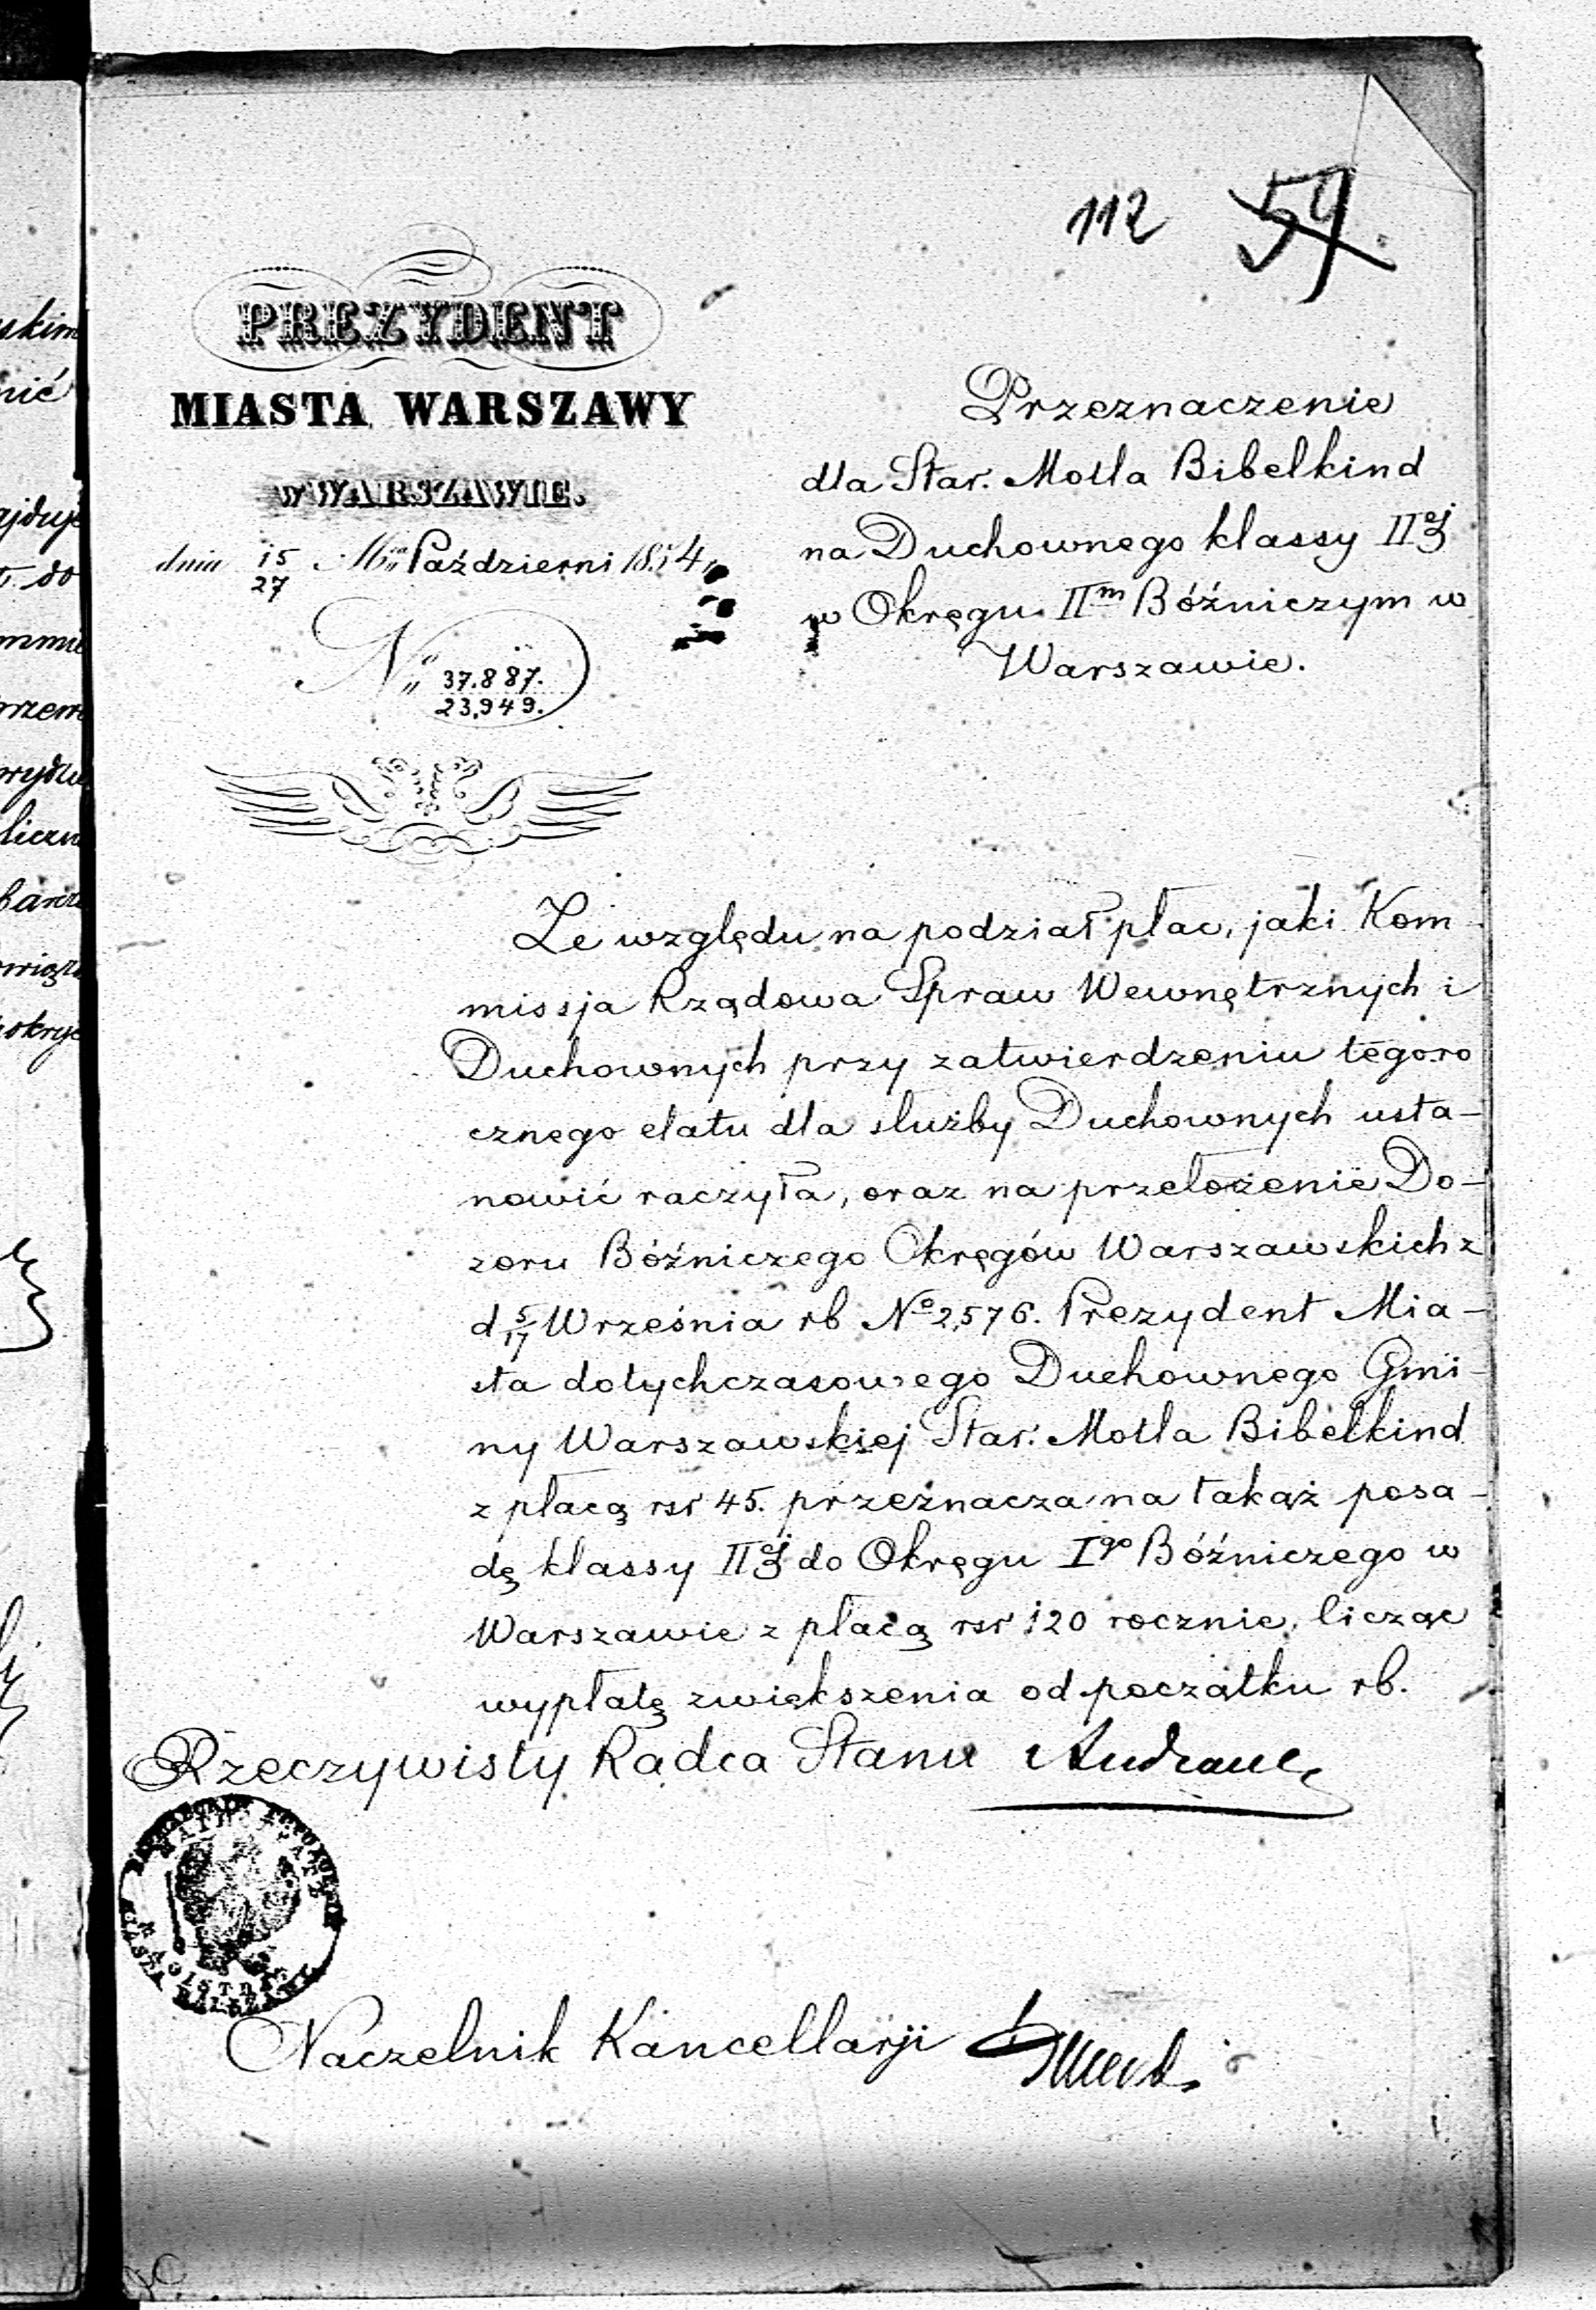 112 59
PREZYDENT
MIASTA WARSZAWY
w WARSZAWIE.
dnia 15/27 Mca Październi 1854
No 37.887.
23,949.
Przeznaczenie
dla Star. Motla Bibelkind
na Duchownego klassy IIej
w Okręgu IIm Bóźniczym w
Warszawie.
Ze względu na podział płac, jaki Kom-
missja Rządowa Spraw Wewnętrznych i
Duchownych przy zatwierdzeniu tegoro
cznego etatu dla służby Duchownych usta-
nowić raczyła, oraz na przełożenie Do-
zoru Bóźniczego Okręgów Warszawskich z
d 5/17 Września rb No 2,576. Prezydent Mia-
sta dotychczasowego Duchownego Gmi-
ny Warszawskiej Star. Motla Bibelkind
z płacą rsr 45. przeznacza na takąż posa-
dę klassy IIej do Okręgu Igo Bóźniczego w
Warszawie z płacą rsr 120 rocznie, licząc
wypłatę zwiększenia od początku rb.
Rzeczywisty Radca Stanu
Naczelnik Kancellarji
skim
nić
ajduje
do